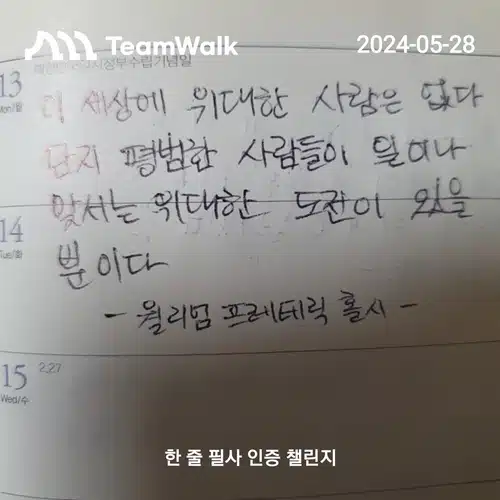 TeamWalk
2024-05-28
13
Mon/월
이 세상에 위대한 사람은 없다
단지 평범한 사람들이 일어나
맞서는 위대한 도전이 있을
14
Tue/화
뿐이다
- 윌리엄 프레데릭 홀시 -
15
2.27
Wed/수
한 줄 필사 인증 챌린지